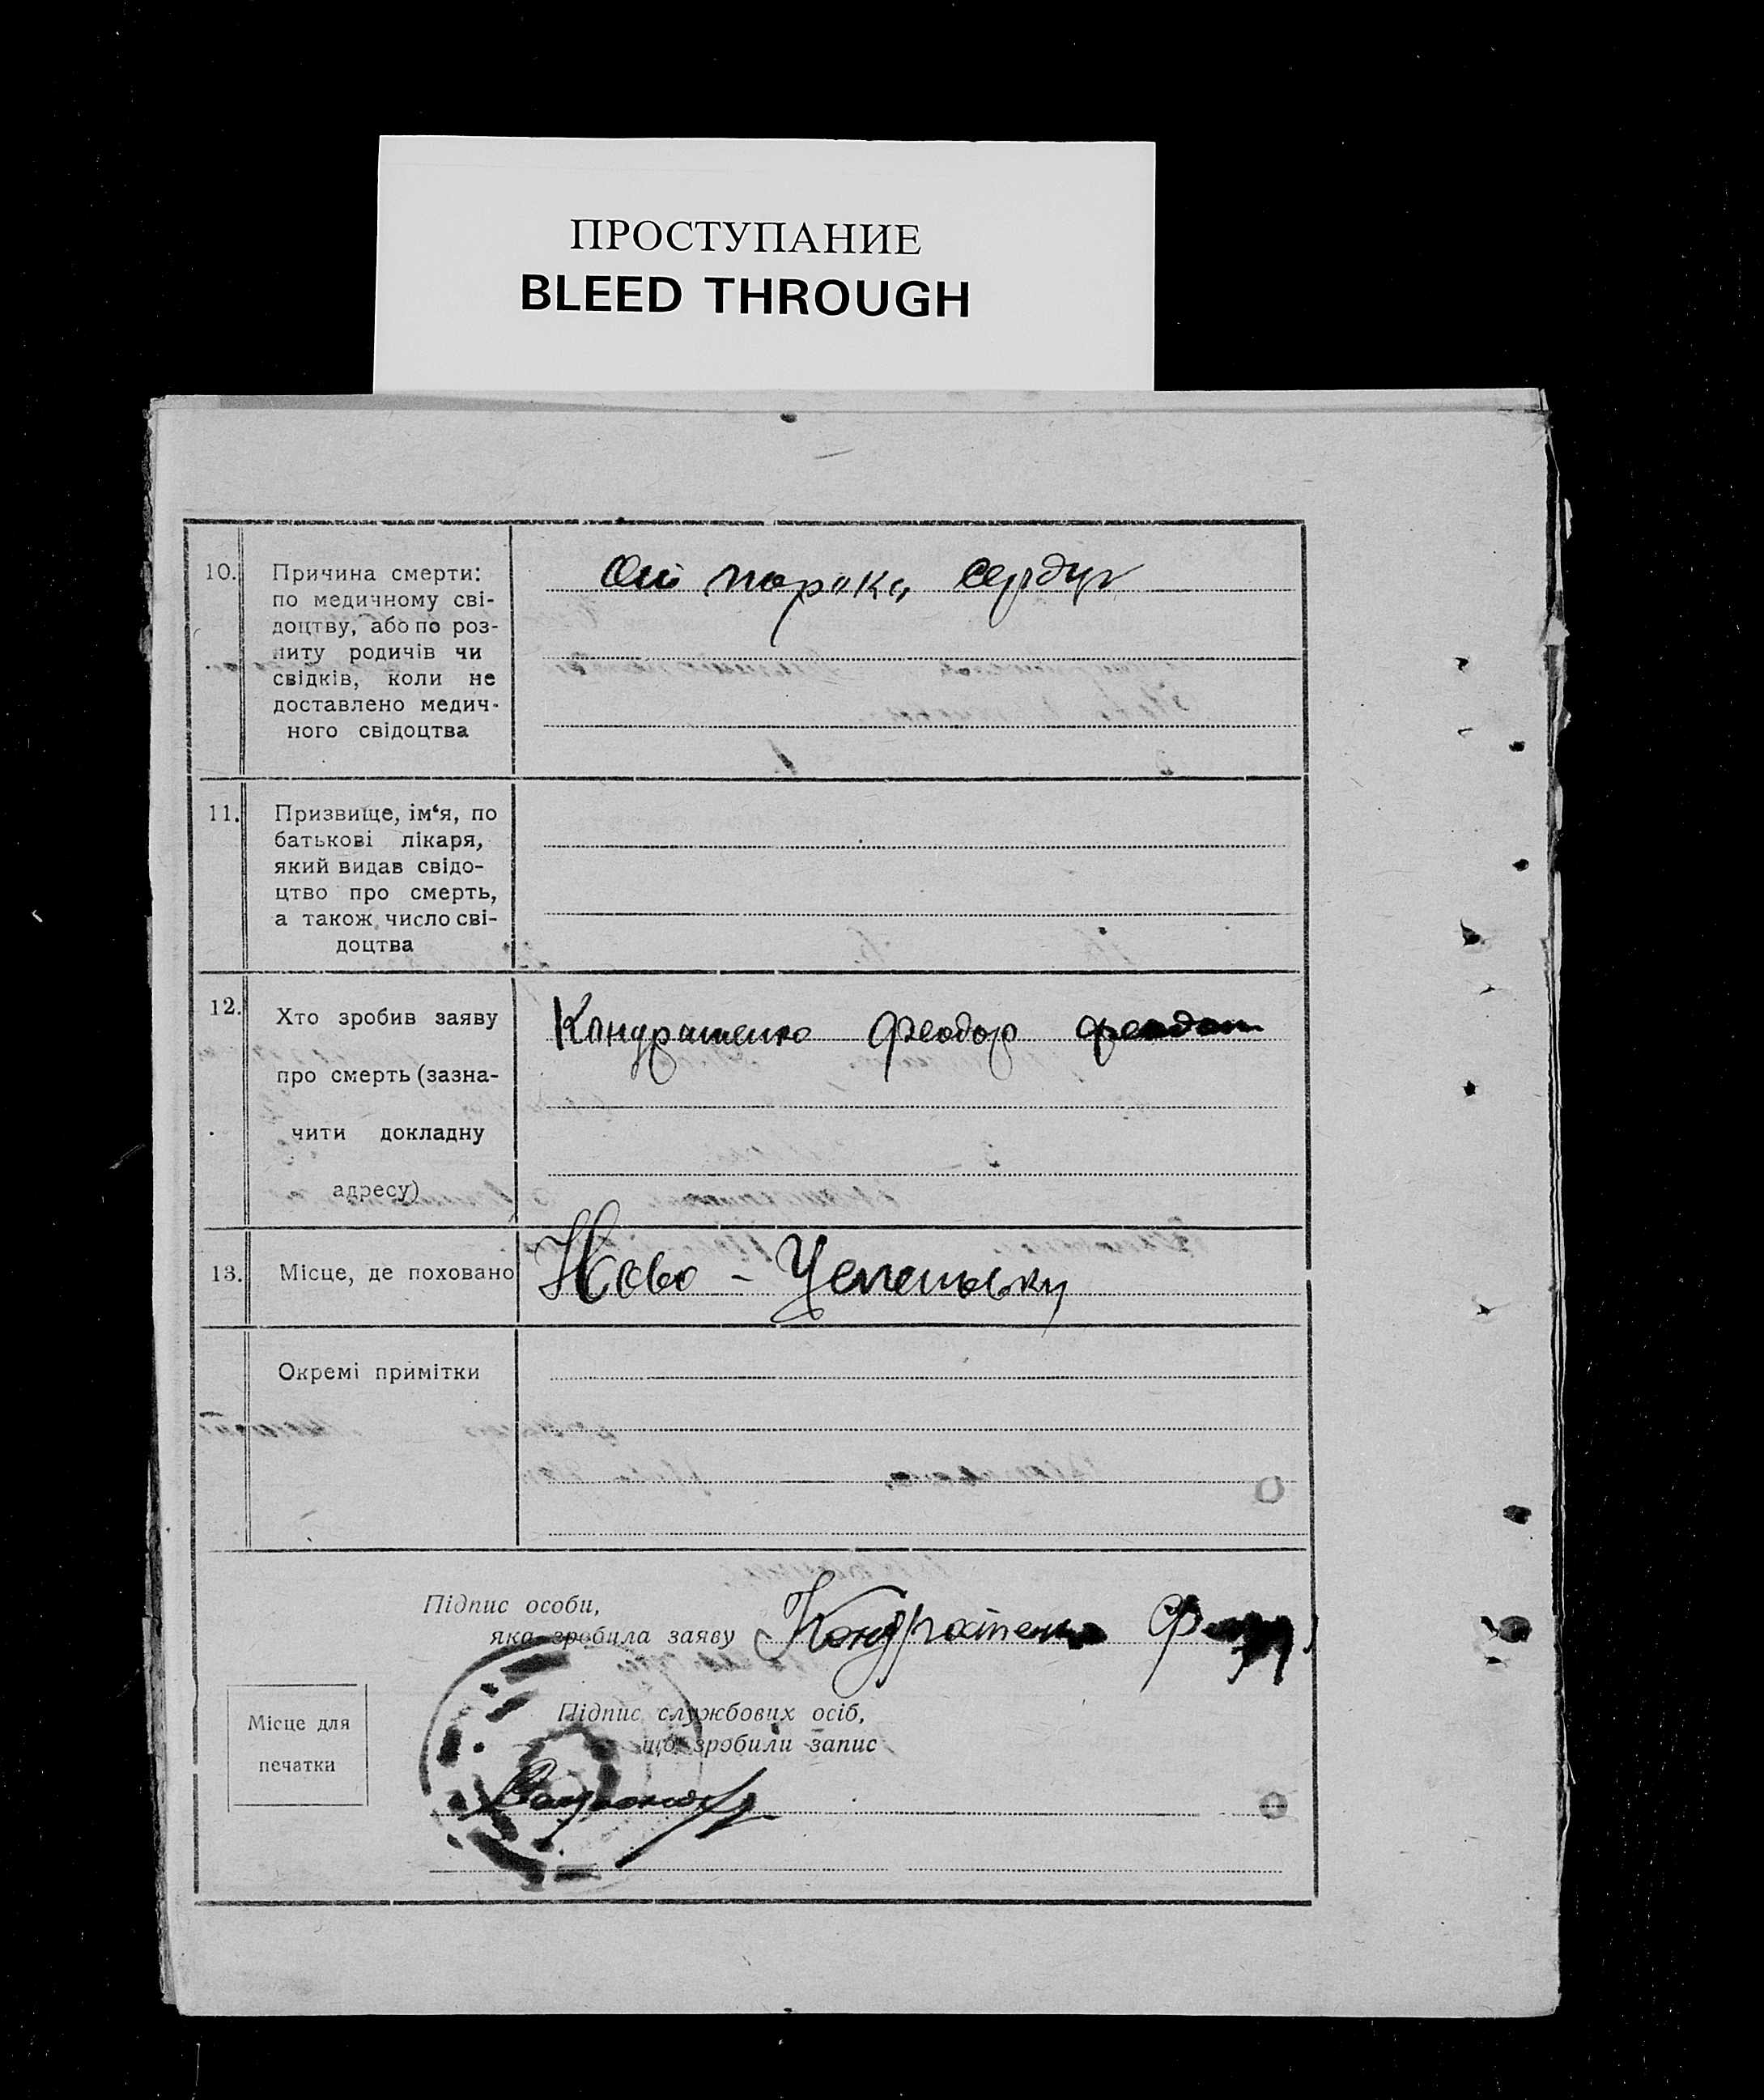 ПРОСТУПАНИЕ
BLEED THROUGH
10.
Причина смерти:
по медичному сві-
доцтву, або по роз-
питу родичів чи
свідків, коли не
доставлено медич-
ного свідоцтва
От порока сердца
11.
Призвище, ім‘я, по
батькові лікаря,
який видав свідо-
цтво про смерть,
а також число сві-
доцтва
12.
Хто зробив заяву
про смерть (зазна-
чити докладну
адресу)
Кондратенко Феодор
13.
Місце, де поховано
Ново -
Окремі примітки
Підпис особи,
яка зробила заяву
Кондратенко
Місце для
печатки
Підпис службових осіб,
що зробили запис